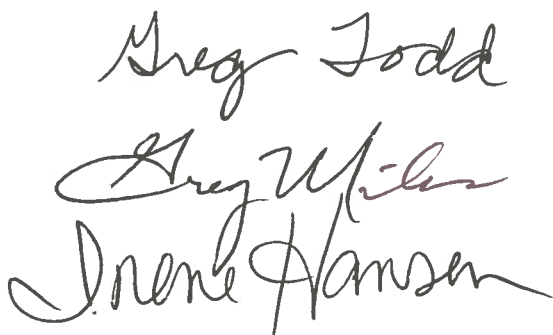 Greg Todd
Greg Miles
Irene Hansen